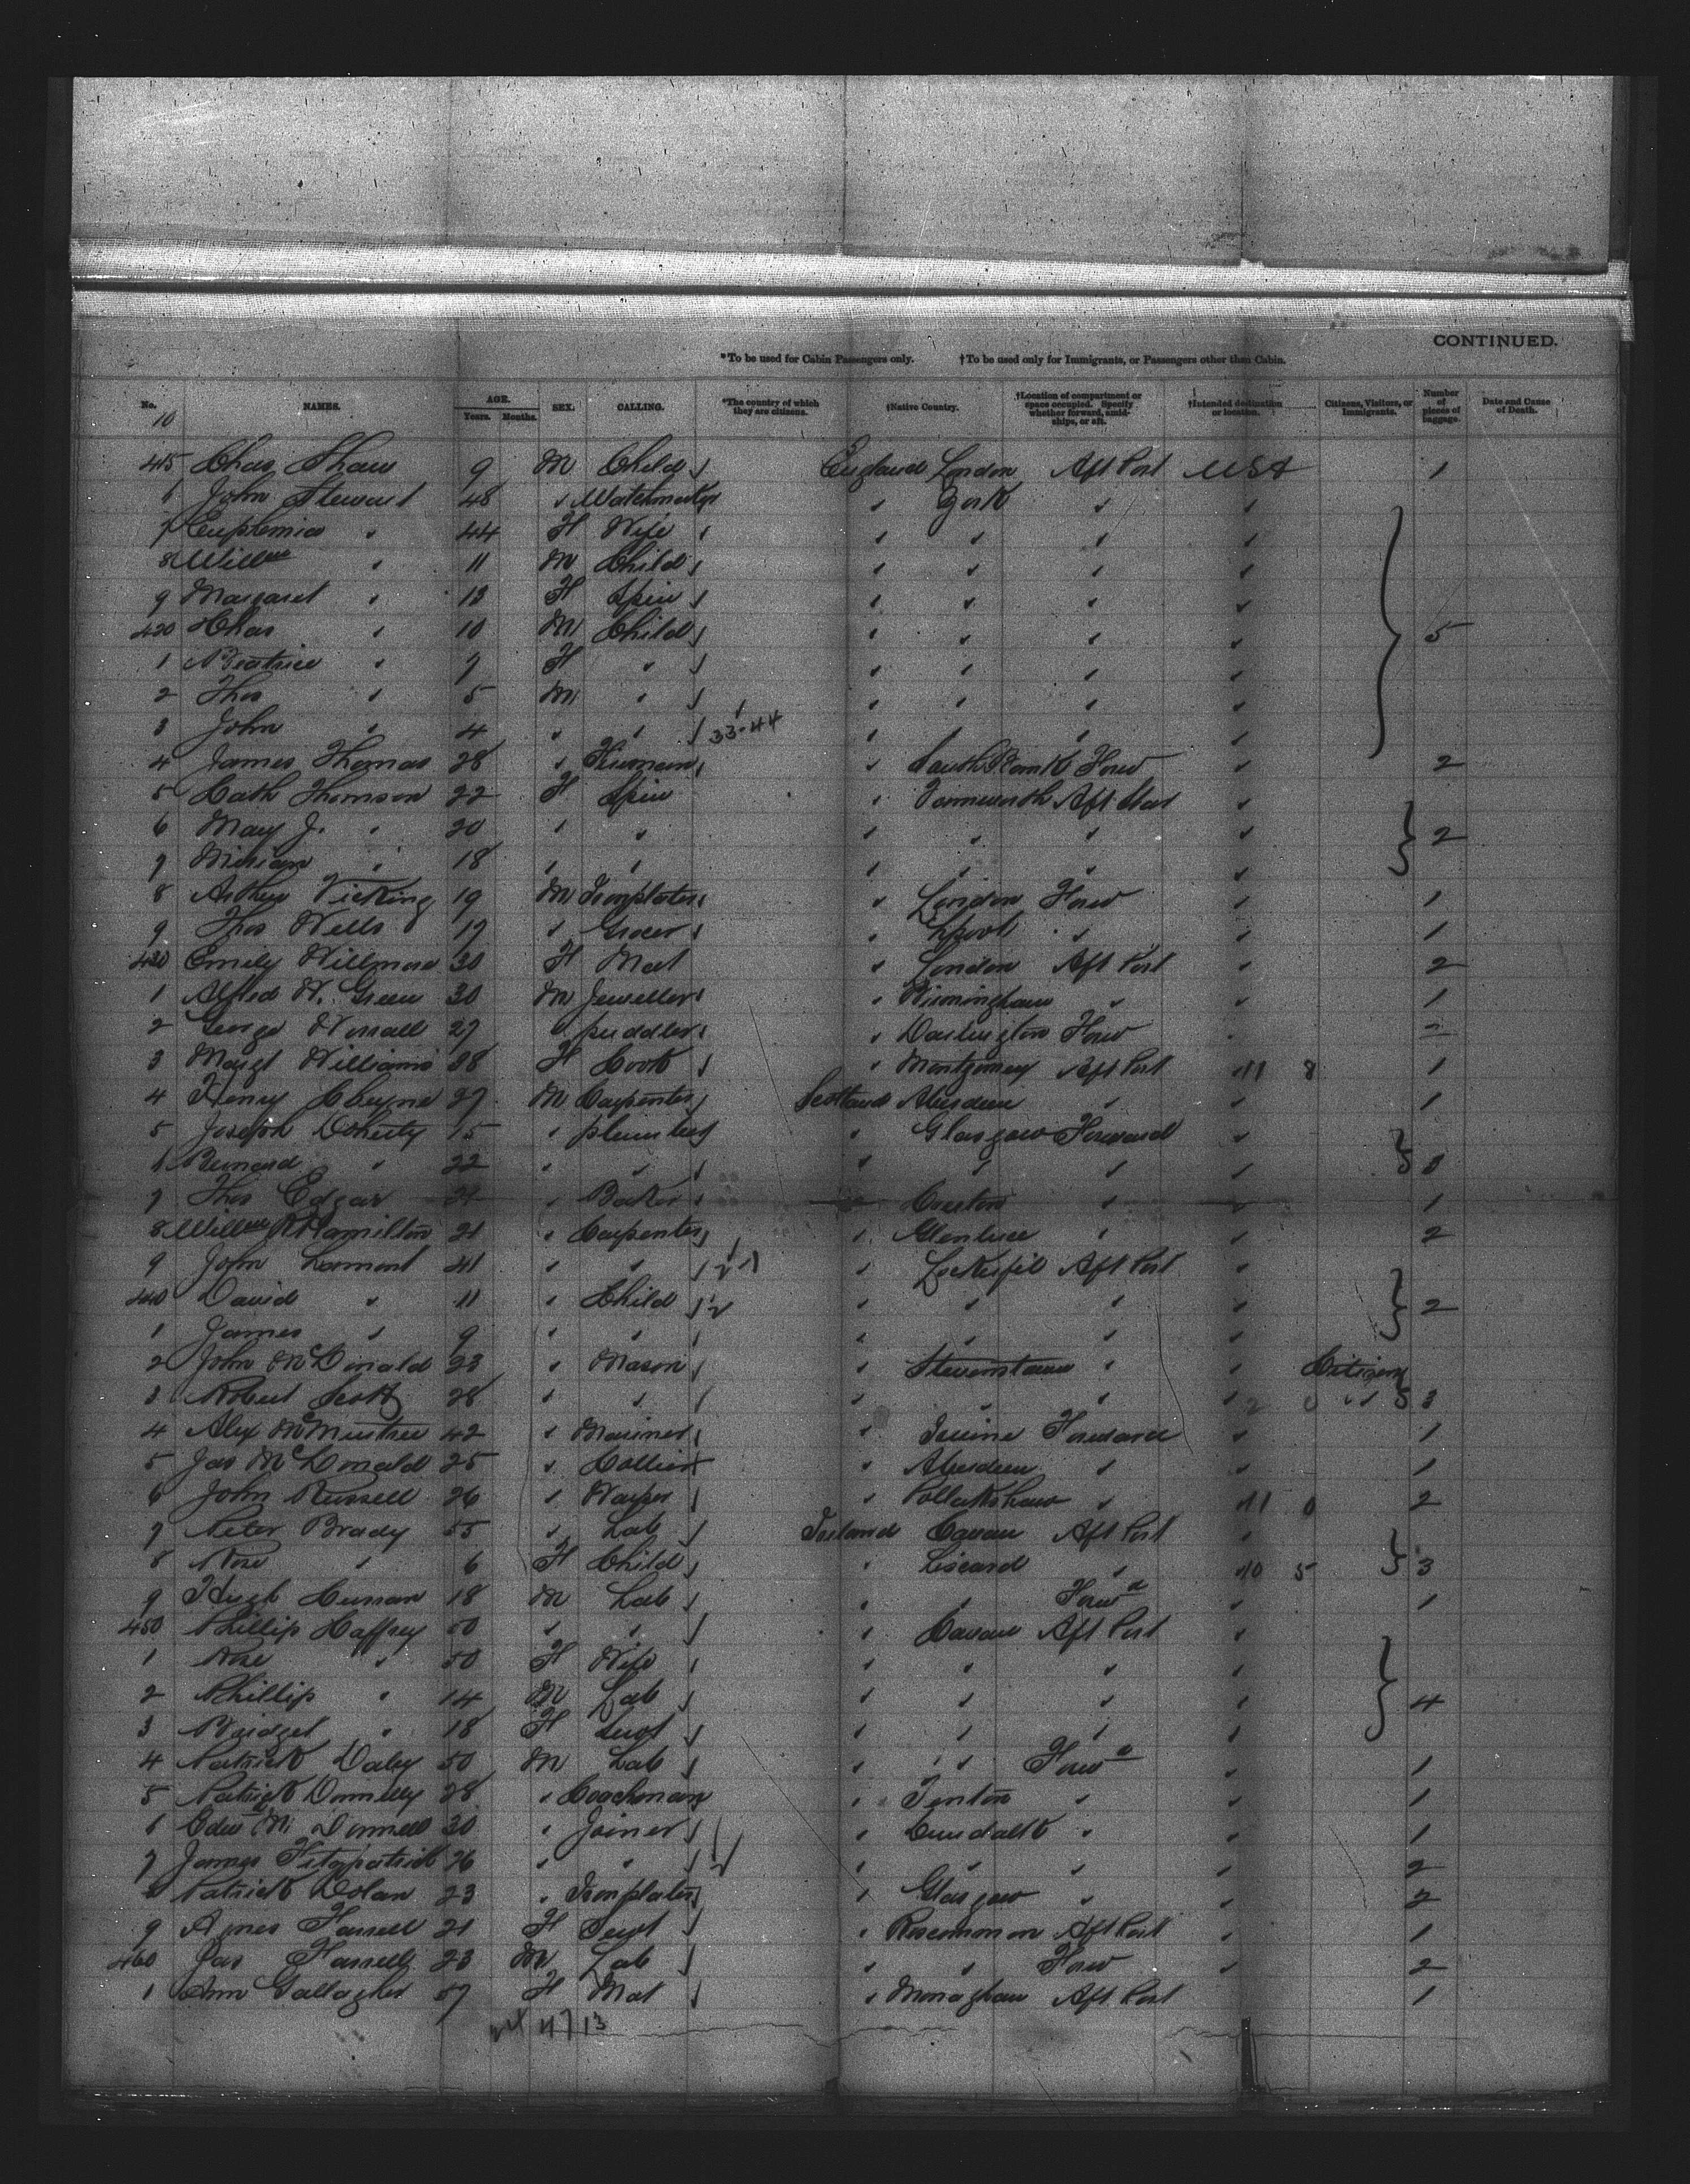 CONTINUED.
*To be used for Cabin Passengers only. †To be used only for Immigrants, or Passengers other than Cabin.
No. NAMES. AGE. Years. Months. SEX. CALLING. *The country of which they are citizens. †Native Country. †Location of compartment or space occupied. Specify whether forward, amidships, or aft. †Intended destination or location. Citizens, Visitors, or Immigrants. Number of pieces of baggage. Date and Cause of Death.
10
415 Chas Shaw 9 M Child England London Aft Port USA 1
6 John Stewart 48 " Watchmaker " York " "
7 Euphemia " 44 F Wife " " " "
8 Willm " 11 M Child " " " "
9 Margaret " 13 F Spin " " " "
420 Chas " 10 M Child " " " " 5
1 Beatrice " 7 F " " " " "
2 Thos " 5 M " " " " "
3 John " 4 " " 33-44 " " " "
4 James Thomas 28 " Fireman " South Bank Forw " 2
5 Cath Thomson 22 F Spin " Aft "
6 Mary J. " 20 " " " " " " 2
7 Miriam " 18 " " " " " "
8 Arthur Vicking 19 M Ironplater " London Forw " 1
9 Thos Wells 19 " Grocer " Lpool " " 1
430 Emily Willmore 30 F Mat " London Aft Port " 2
1 Alfred W. Green 30 M Jeweller " Birmingham " " 1
2 George Worrall 27 " puddler " Darlington Forw "
3 Margt Williams 38 F Cook " Montgomery Aft Port " 11 8 1
4 Henry Cheyne 27 M Carpenter Scotland Aberdeen " " 1
5 Joseph Doherty 15 " plumber " Glasgow Forward "
6 Bernard " 22 " " " " " " 3
7 Thos Edgar 21 " Baker " Creeton " " 1
8 Willm Hamilton 21 " Carpenter " Glenluce " " 2
9 John Lamont 41 " " " Aft Port "
440 David " 11 " Child " " " " 2
1 James " 9 " " " " " "
2 John McDonald 23 " Mason " Stevenstown " " Citizen
3 Robert Scott 28 " " " " " " 3
4 Alex 42 " Mariner " Irvine Forward " 1
5 Jas McDonald 25 " Collier " Aberdeen " " 1
6 John Russell 26 " " Pollokshaw " " 11 0 2
7 Peter Brady 55 " Lab Ireland Cavan Aft Port "
8 Rose " 6 F Child " Liscard " " 10 5 3
9 Hugh Curran 18 M Lab " " Forwd " 1
450 Phillip Caffrey 50 " " " Cavan Aft Port "
1 Rose " 50 F Wife " " " "
2 Phillip " 14 M Lab " " " " 4
3 Bridget " 18 F Servt " " " "
4 Patrick Daley 50 M Lab " " Forwd " 1
5 Patrick Donnelly 28 " Coachman " " " 1
6 Edwd McDonnell 30 " Joiner " Dundalk " " 1
7 James Fitzpatrick 26 " " " " " " 2
8 Patrick Dolan 23 " Ironplater " Glasgow " " 2
9 Agnes Farrell 21 F Servt " Roscommon Aft Port " 1
460 Jas Farrell 23 M Lab " " Forw " 2
1 Ann Gallagher 57 F Mat " Monaghan Aft Port 1